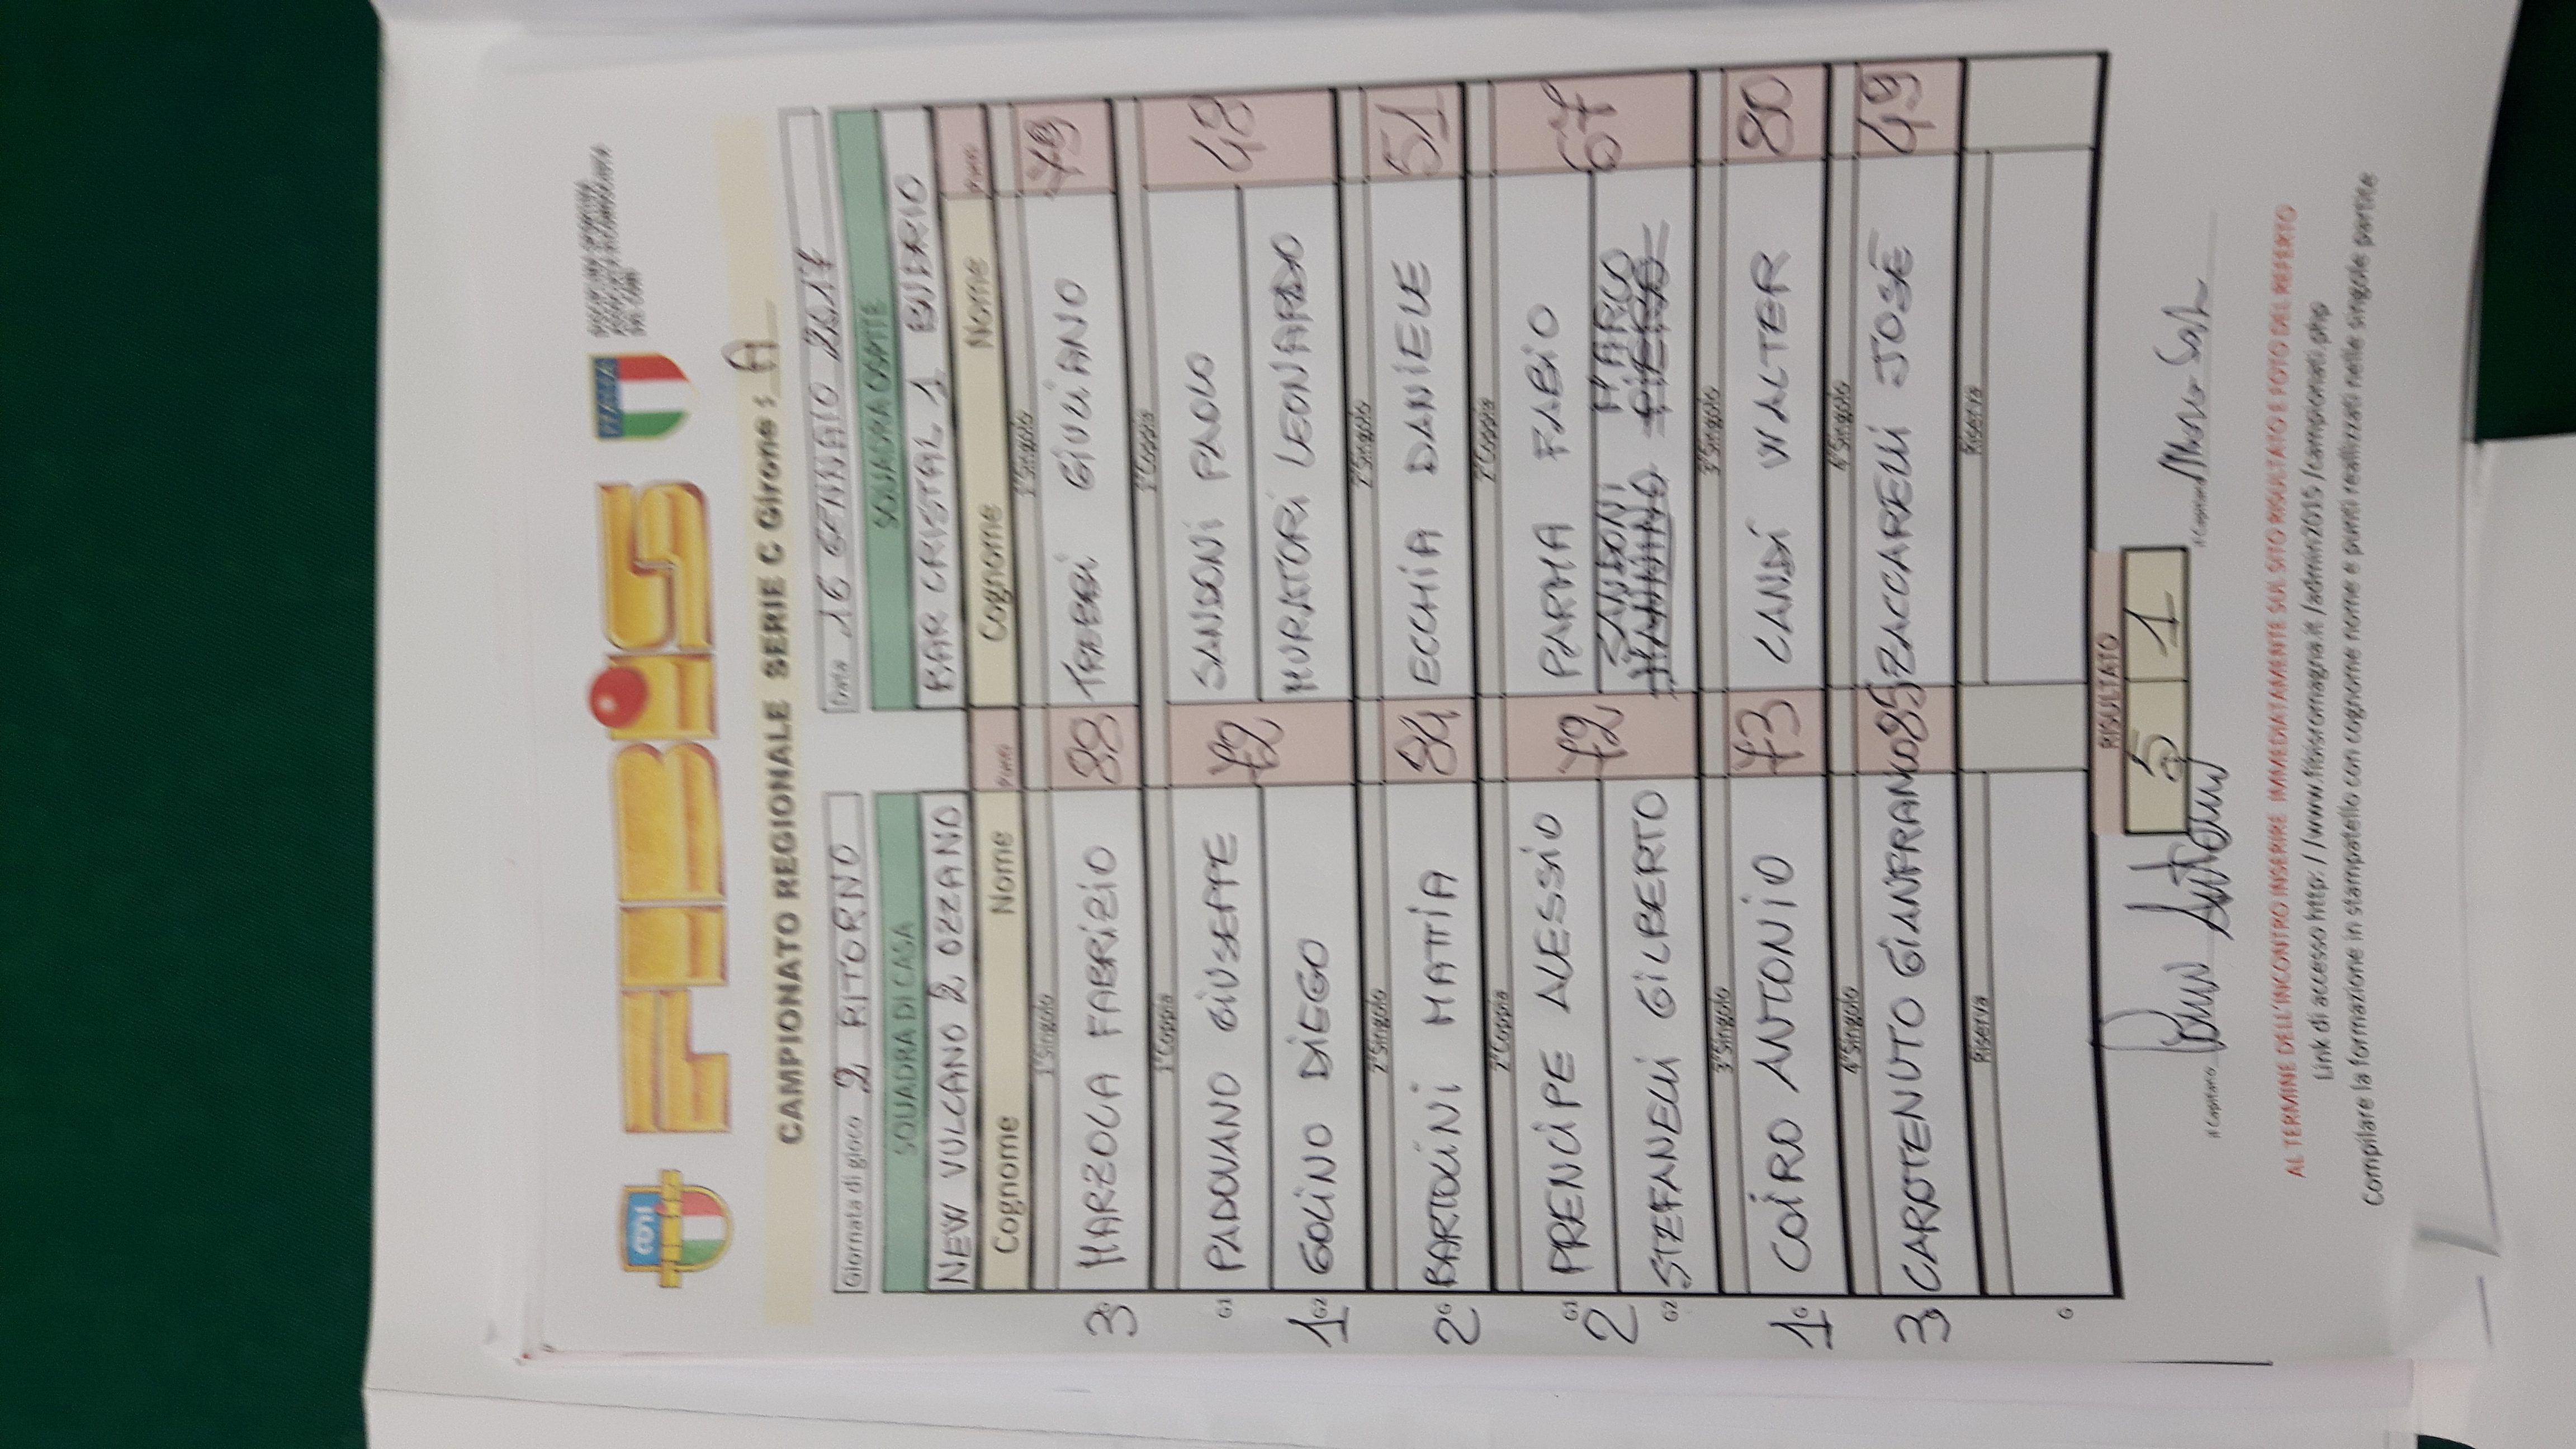 CONI
FIBIS
ITALIA
CAMPIONATO REGIONALE SERIE C Girone : A
Giornata di gioco 2 RITORNO
Data 16 GENNAIO 2017
SQUADRA DI CASA SQUADRA OSPITE
NEW VULCANO 2 OZZANO BAR CRISTAL 1 BUDRIO
Cognome Nome Punti Cognome Nome Punti
1°Singolo 1°Singolo
3 G MARZOLA FABRIZIO 88 TREBBI GIULIANO 79
1°Coppia 1°Coppia
G1 PADOVANO GIUSEPPE 72 SANDONI PAOLO 48
1 G2 GOLINO DIEGO MURATORI LEONARDO
2°Singolo 2°Singolo
2 G BARTOLINI MATTIA 84 ECCHIA DANIELE 51
2°Coppia 2°Coppia
2 G1 PRENCIPE ALESSIO 72 PARMA FABIO 67
G2 STEFANELLI GILBERTO SANDONI MARCO
PIERINO
3°Singolo 3°Singolo
1 G COIRO ANTONIO 73 CANDI WALTER 80
4°Singolo 4°Singolo
3 CAROTENUTO GIANFRANCO 85 ZACCARELLI JOSÈ 49
Riserva Riserva
G
RISULTATO
5 1
Il Capitano Il Capitano
AL TERMINE DELL'INCONTRO INSERIRE IMMEDIATAMENTE SUL SITO RISULTATO E FOTO DEL REFERTO
Link di accesso http://www.fibisromagna.it/admin2015/campionati.php
Compilare la formazione in stampatello con cognome nome e punti realizzati nelle singole partite